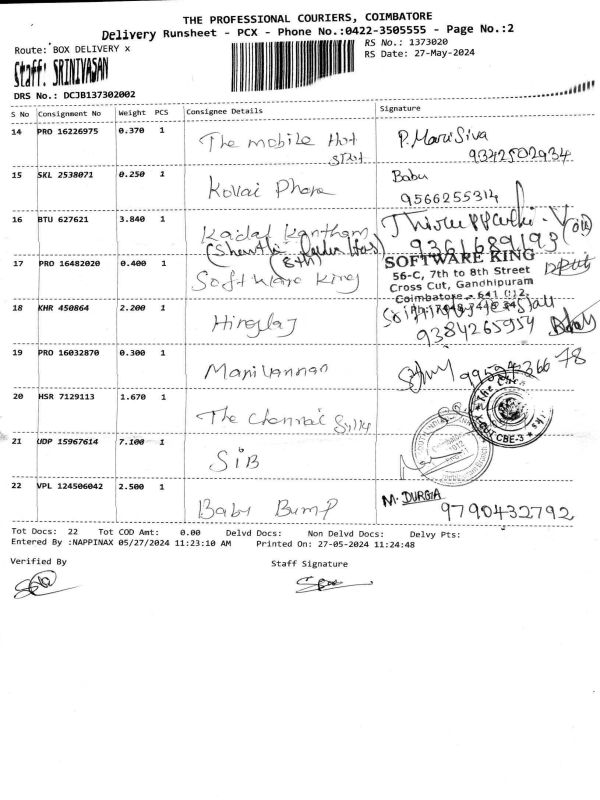 THE PROFESSIONAL COURIERS, COIMBATORE
Delivery Runsheet - PCX - Phone No.:0422-3505555 - Page No.:2
Route: BOX DELIVERY x
RS No.: 1373020
RS Date: 27-May-2024
Staff: SRINIVASAN
DRS No.: DCJB137302002
S No Consignment No Weight PCS Consignee Details Signature
14 PRO 16226975 0.370 1 The mobile Hot P. MariSiva
9342502934
15 SKL 2538071 0.250 1 Kovai Phone Babu
9566255314
16 BTU 627621 3.840 1 Kadal Kantham
9361689193
(8th)
17 PRO 16482020 0.400 1 Software King SOFTWARE KING
56-C, 7th to 8th Street
Cross Cut, Gandhipuram
Coimbatore - 641 012.
18 KHR 450864 2.200 1
9384265954
19 PRO 16032870 0.300 1 Manivannan
20 HSR 7129113 1.670 1 The Chennai Silks
CBE-3
21 UDP 15967614 7.100 1 SIB
22 VPL 124506042 2.500 1 Baby Bump M. DURGA
9790432792
Tot Docs: 22 Tot COD Amt: 0.00 Delvd Docs: Non Delvd Docs: Delvy Pts:
Entered By :NAPPINAX 05/27/2024 11:23:10 AM Printed On: 27-05-2024 11:24:48
Verified By Staff Signature